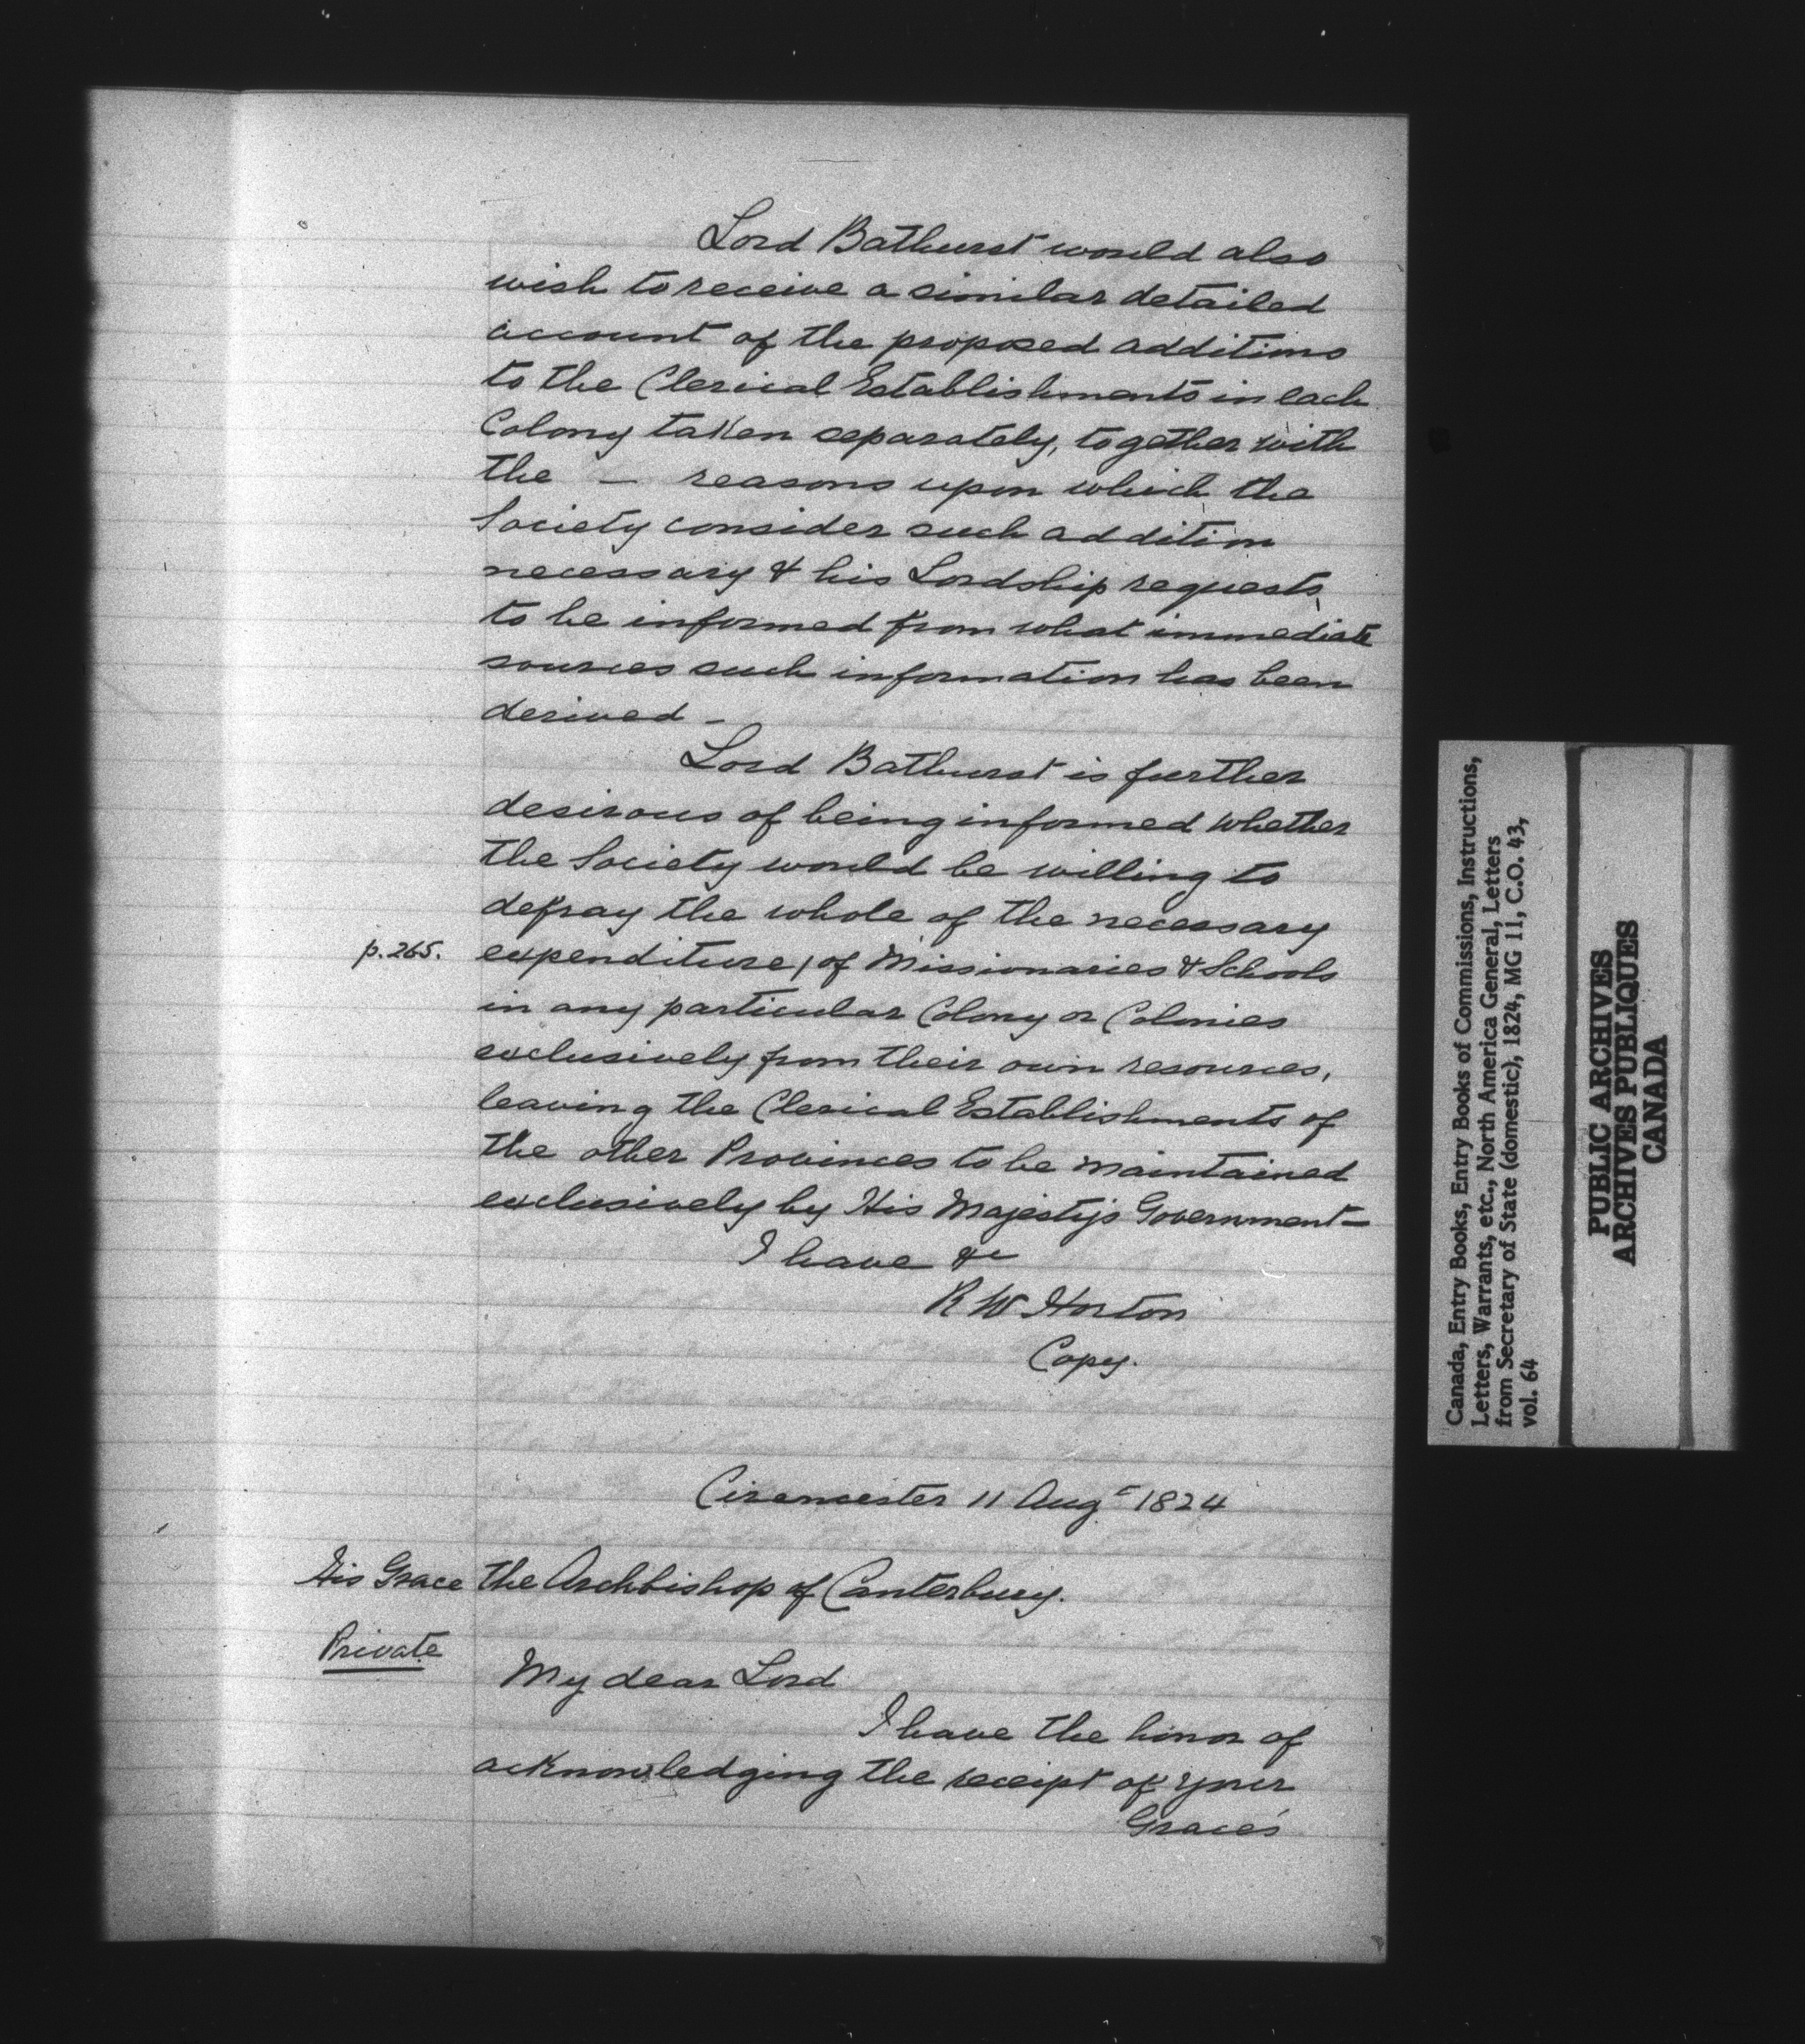 Lord Bathurst would also
wish to receive a similar detailed
account of the proposed additions
to the Clerical Establishments in each
Colony taken separately, together with
the — reasons upon which the
Society consider such addition
necessary & his Lordship requests
to be informed from what immediate
sources such information has been
derived —
Lord Bathurst is further
desirous of being informed whether
the Society would be willing to
defray the whole of the necessary
p.265. expenditure / of Missionaries & Schools
in any particular Colony or Colonies
exclusively from their own resources,
leaving the Clerical Establishments of
the other Provinces to be maintained
exclusively by His Majesty's Government —
I have &c
R W Horton
Copy.
Cirencester 11 Augt 1824
His Grace the Archbishop of Canterbury.
Private
My dear Lord
I have the honor of
acknowledging the receipt of your
Grace's
Canada, Entry Books, Entry Books of Commissions, Instructions,
Letters, Warrants, etc., North America General, Letters
from Secretary of State (domestic), 1824, MG 11, C.O. 43,
vol. 64
PUBLIC ARCHIVES
ARCHIVES PUBLIQUES
CANADA